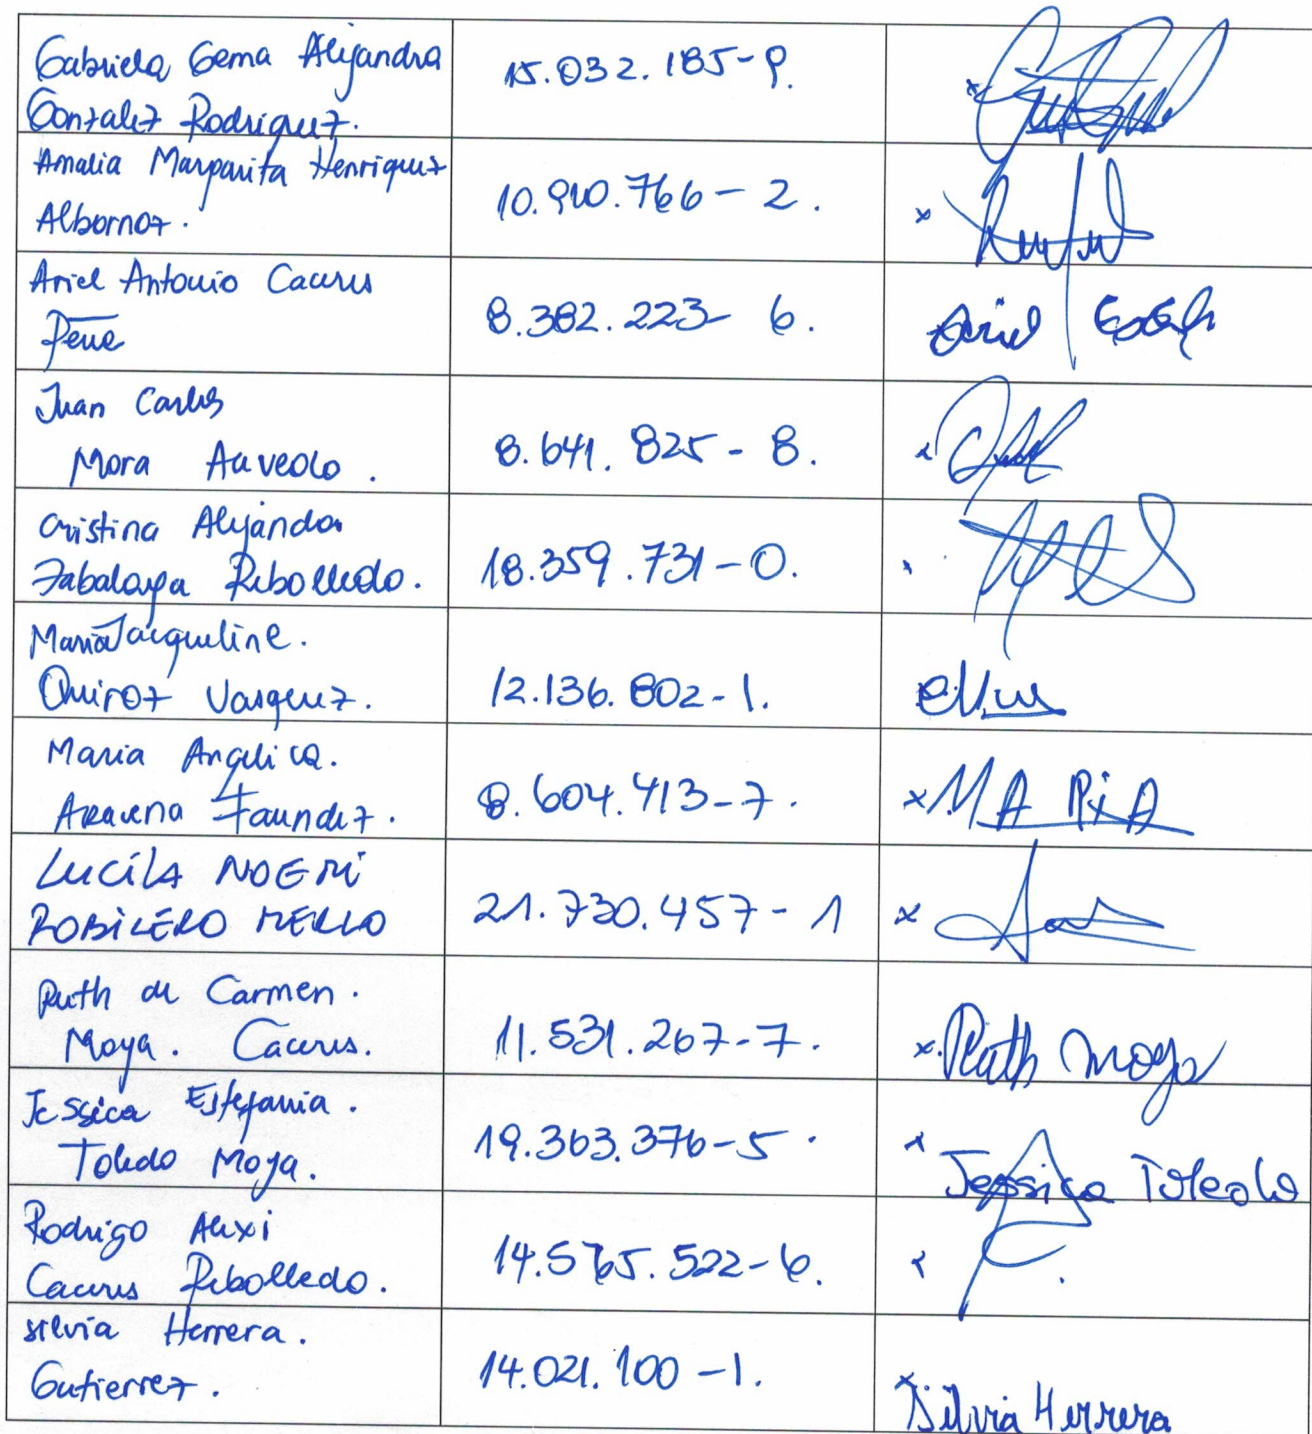 Gabriela Gema Alejandra 15.032.185-9.
Gonzalez Rodriguez.
Amalia Margarita Henriquez
Albornoz. 10.910.766-2.
Ariel Antonio Caceres
Peñe 8.382.223-6. Ariel
Juan Carlos
Mora Aavedo. 8.641.825-8.
Cristina Alejandra
Zabalaga Rebolledo. 18.359.731-0.
Maria Jacqueline.
Quiroz Vasquez. 12.136.802-1.
Maria Angelica.
Aravena Faundez. 8.604.413-7. x MARiA
LUCiLA NOEMi
ROBiLERO MERLO 21.730.457-1 x
Ruth de Carmen.
Moya. Caceres. 11.531.267-7. x. Ruth Moya
Jessica Estefania.
Toledo Moya. 19.363.376-5. x Jessica Toledo
Rodrigo Alexi
Caceres Rebolledo. 14.565.522-6.
Silvia Herrera.
Gutierrez. 14.021.100-1. x Silvia Herrera